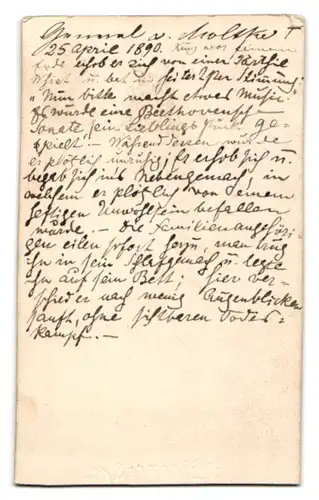 General v. Moltke †
25 April 1890. Kurz vor seinem
Ende erhob er sich von einer Parthie
Whist u. bat in heiterster Stimmung:
"Nun bitte macht etwas Musik"
Es wurde eine Beethovensche
Sonate, ein Lieblings Stück ge-
spielt — Während dessen wurde
er plötzlich unruhig, er erhob sich u.
begab sich ins Nebengemach, in
welchem er plötzlich von einem
heftigen Unwohlsein befallen
wurde. — Die Familienangehöri-
gen eilen sofort herzu, man trug
ihn in sein Schlafgemach u. legte
ihn auf sein Bett; hier ver-
schied er nach wenig Augenblicken
sanft, ohne sichtbaren Todes-
kampf. —